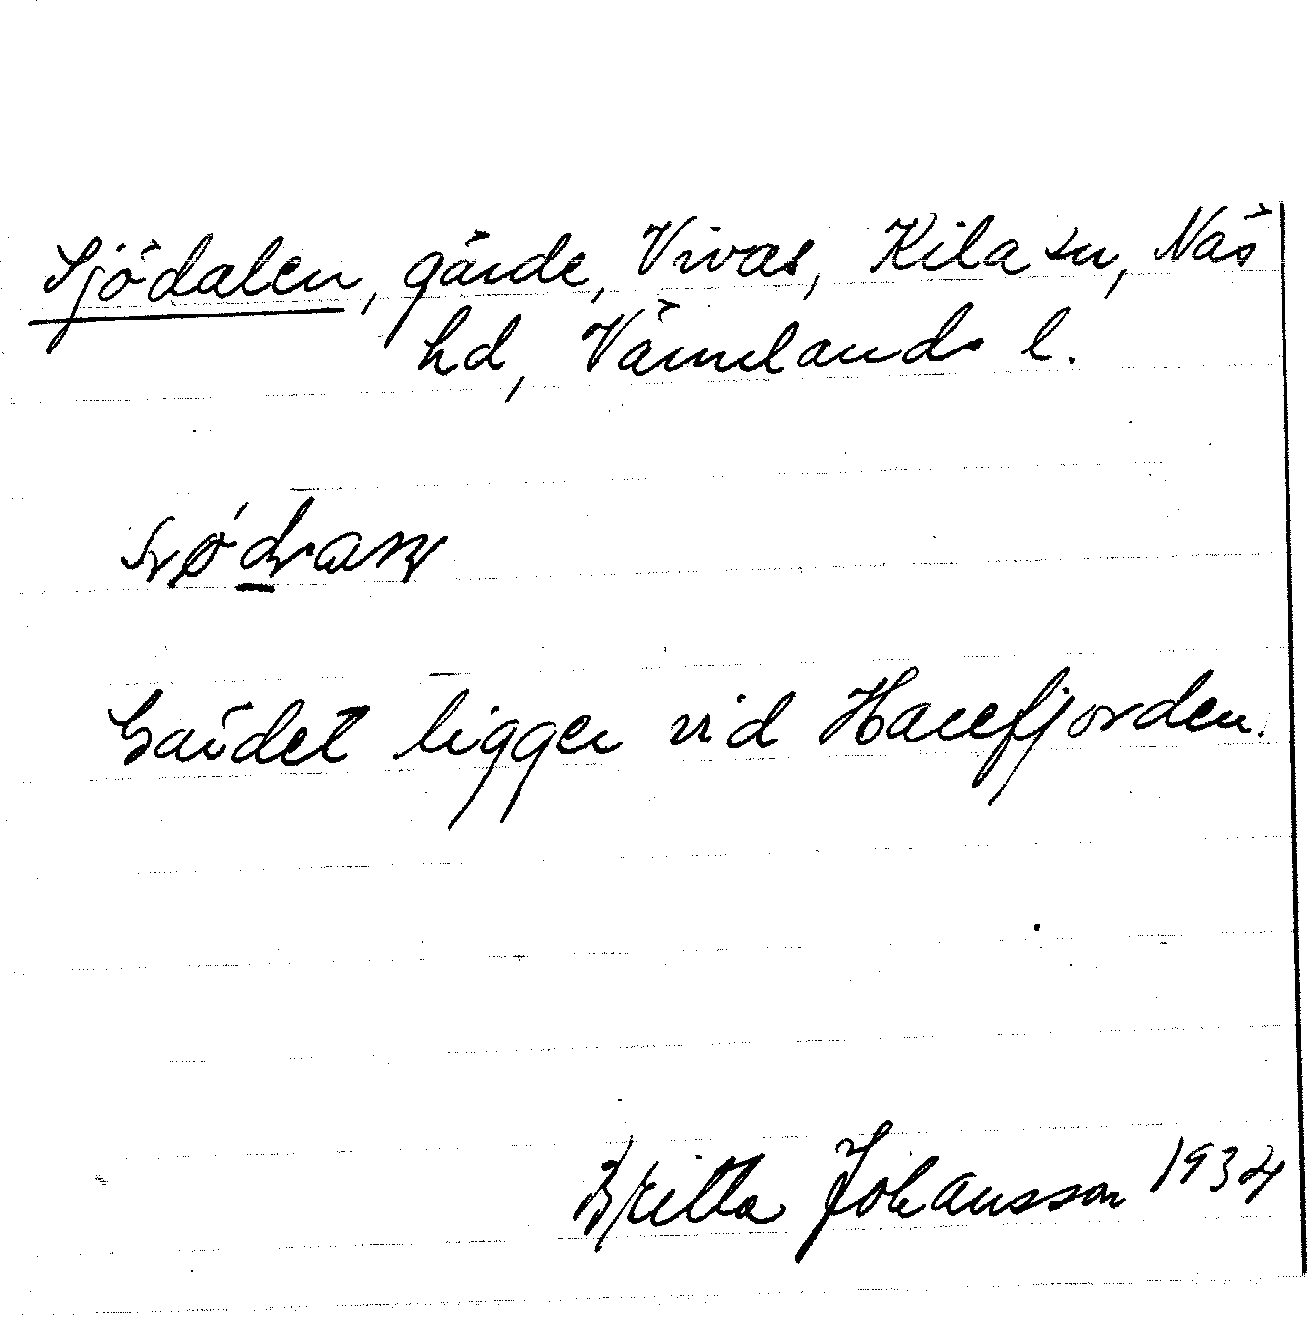 Sjödalen, gärde, Vivas, Kila sn, Näs
hd, Värmlands l.
Gärdet ligger vid Harefjorden.
Britta Johansson 1934